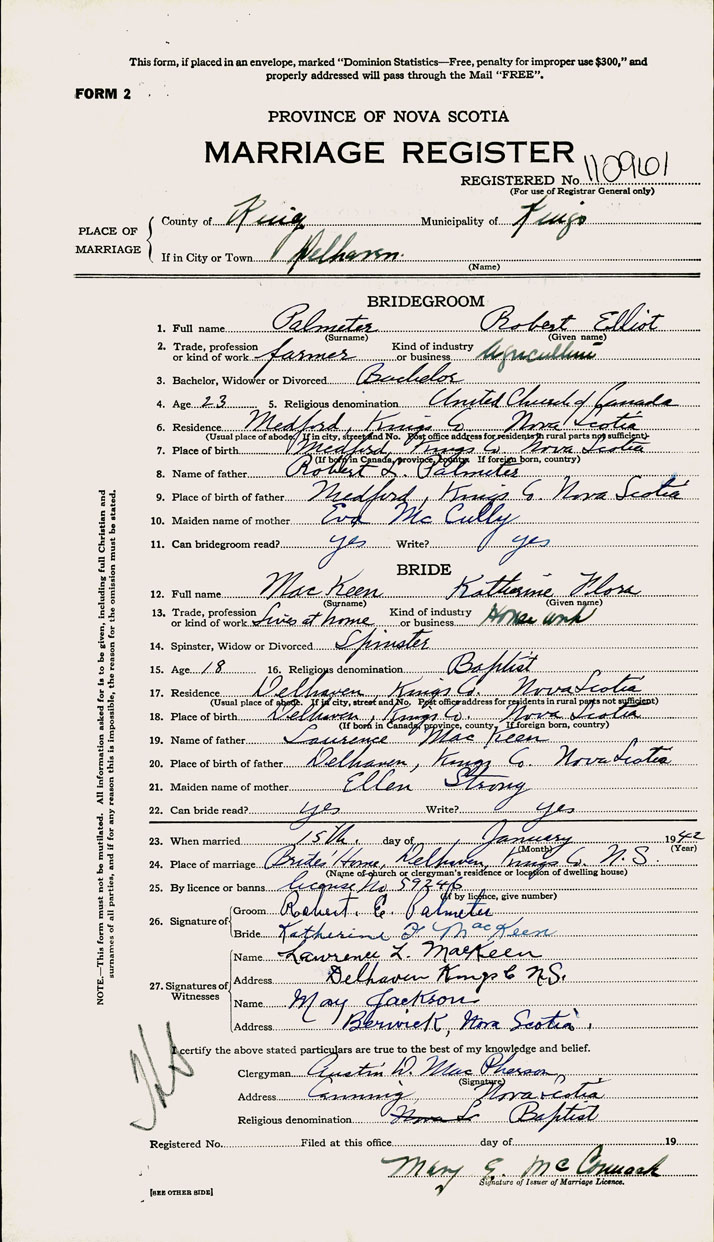 This form, if placed in an envelope, marked "Dominion Statistics—Free, penalty for improper use $300," and
properly addressed will pass through the Mail "FREE".
FORM 2
PROVINCE OF NOVA SCOTIA
MARRIAGE REGISTER
REGISTERED No. 110961
(For use of Registrar General only)
PLACE OF MARRIAGE
County of Kings Municipality of Kings
If in City or Town Delhaven.
(Name)
BRIDEGROOM
1. Full name Palmeter Robert Elliot
(Surname) (Given name)
2. Trade, profession or kind of work farmer Kind of industry or business Agriculture
3. Bachelor, Widower or Divorced Bachelor
4. Age 23 5. Religious denomination United Church of Canada
6. Residence Medford, Kings Co Nova Scotia
(Usual place of abode. If in city, street and No. Post office address for residents in rural parts not sufficient)
7. Place of birth Medford, Kings Co Nova Scotia
(If born in Canada, province, county. If foreign born, country)
8. Name of father Robert L. Palmeter
9. Place of birth of father Medford, Kings Co. Nova Scotia
10. Maiden name of mother Eva McCully
11. Can bridegroom read? yes Write? yes
BRIDE
12. Full name MacKeen Katherine Flora
(Surname) (Given name)
13. Trade, profession or kind of work Lives at home Kind of industry or business House work
14. Spinster, Widow or Divorced Spinster
15. Age 18 16. Religious denomination Baptist
17. Residence Delhaven, Kings Co. Nova Scotia
(Usual place of abode. If in city, street and No. Post office address for residents in rural parts not sufficient)
18. Place of birth Delhaven, Kings Co. Nova Scotia
(If born in Canada, province, county. If foreign born, country)
19. Name of father Laurence MacKeen
20. Place of birth of father Delhaven, Kings Co. Nova Scotia
21. Maiden name of mother Ellen Strong
22. Can bride read? yes Write? yes
23. When married 15th day of January 1942
(Month) (Year)
24. Place of marriage Brides' Home, Delhaven, Kings Co. N.S.
(Name of church or clergyman's residence or location of dwelling house)
25. By licence or banns license No 59246
(If by licence, give number)
26. Signature of
Groom Robert. E. Palmeter
Bride Katherine F MacKeen
27. Signatures of Witnesses
Name Lawrence L. MacKeen
Address Delhaven Kings Co N.S.
Name May Jackson
Address Berwick, Nova Scotia.
I certify the above stated particulars are true to the best of my knowledge and belief.
Clergyman Austin D. MacPherson
(Signature)
Address Canning, Nova Scotia
Religious denomination Nova Sc Baptist
Registered No. Filed at this office day of 19
Mary E. McCormack
Signature of Issuer of Marriage Licence.
[SEE OTHER SIDE]
NOTE.—This form must not be mutilated. All information asked for is to be given, including full Christian and
surnames of all parties, and if for any reason this is impossible, the reason for the omission must be stated.